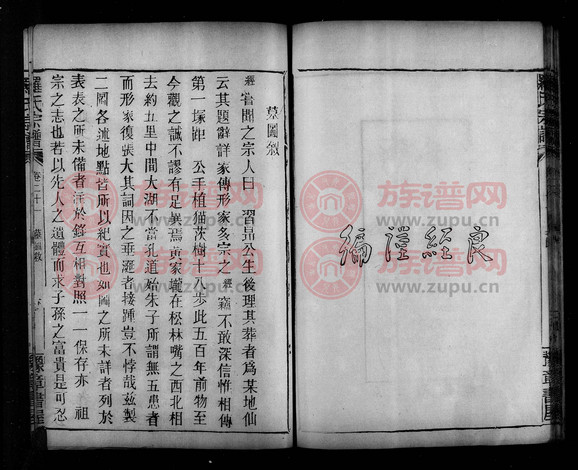 良經澄編
墓圖敘
經嘗聞之宗人曰習昂公生後理其葬者爲某地仙
云其題辭詳家傳形家多宗之經竊不敢深信惟相傳
第一塚距公手植猫茨樹十八步此五百年前物至
今觀之誠不謬有足異焉黃家壠在松林嘴之西北相
去約五里中間大湖不當孔道始朱子所謂無五患者
而形家復張大其詞因之垂涎者接踵豈不悖哉茲製
二圖各述地點皆所以紀實也如圖之所未詳者列於
表表之所未備者注於錄互相對照一一保存亦 祖
宗之志也若以先人之遺體而求子孫之富貴是可忍
羅氏宗譜
卷二十一
墓圖敘
豫章書屋
羅氏宗譜
豫章書屋
族谱网
www.zupu.cn
族谱网
www.zupu.cn
族谱网
www.zupu.cn
族谱网
www.zupu.cn